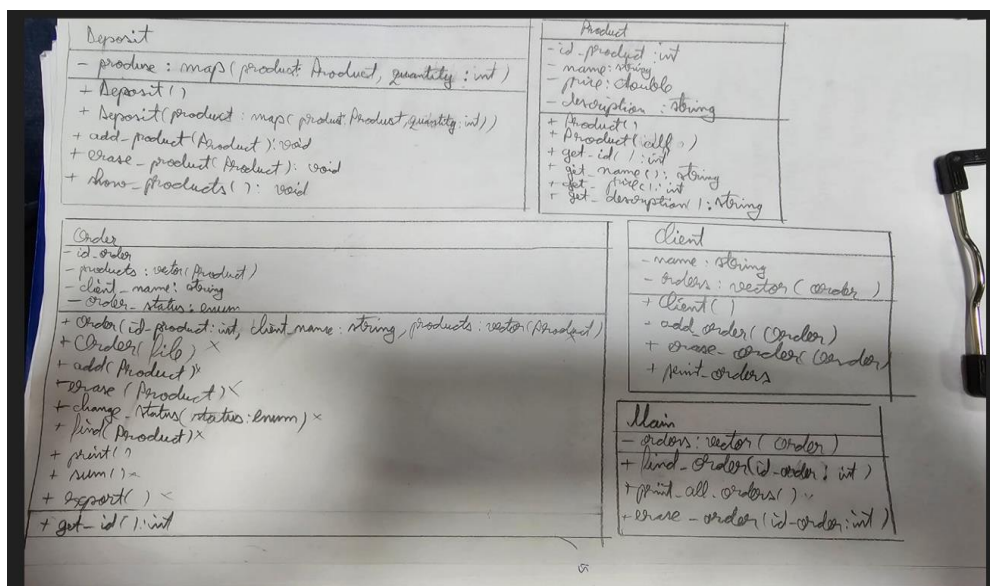 Deposit
- produse : map(product: Product, quantity : int)
+ Deposit()
+ Deposit(product : map(product: Product, quantity: int))
+ add_product(Product): void
+ erase_product(Product): void
+ show_products(): void
Product
- id_product : int
- name: string
- price: double
- description : string
+ Product()
+ Product(all)
+ get-id(): int
+ get_name(): string
+ get_price(): int
+ get_description(): string
Order
- id_order
- products : vector(Product)
- client_name: string
- order_status: enum
+ Order(id_product: int, client_name : string, products : vector(Product)
+ Order(file) x
+ add(Product) x
+ erase(Product) x
+ change_status(status: enum) x
+ find(Product) x
+ print()
+ sum() x
+ export() x
+ get_id(): int
Client
- name : string
- orders : vector(order)
+ Client()
+ add_order(Order)
+ erase_order(Order)
+ print_orders
Main
- orders: vector(Order)
+ find_Order(id_order: int)
+ print_all_orders()
+ erase_order(id_order: int)